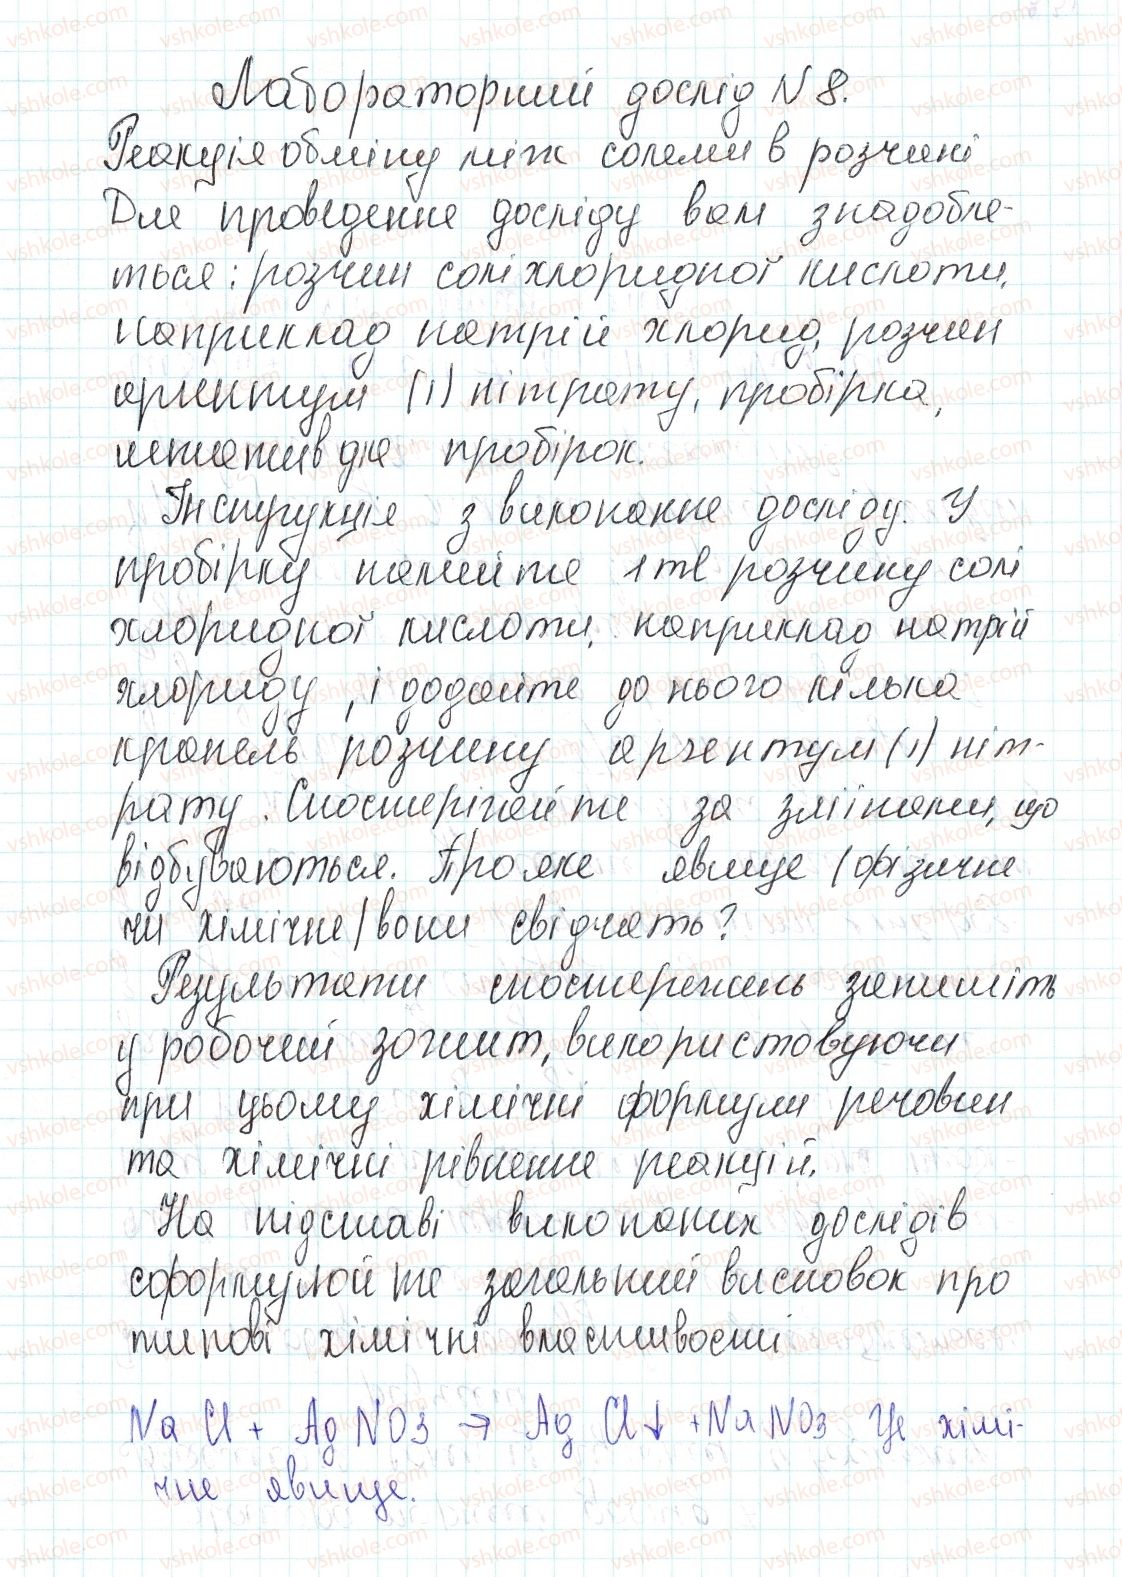 Лабораторний дослід N 8.
Реакція обміну між солями в розчині
Для проведення досліду вам знадобля-
ться: розчин солі хлоридної кислоти,
наприклад натрій хлорид, розчин
аргентум (I) нітрату, пробірка,
штатив для пробірок.
Інструкція з виконання досліду. У
пробірку налийте 1 мл розчину солі
хлоридної кислоти, наприклад натрій
хлориду, і додайте до нього кілька
крапель розчину аргентум (I) ніт-
рату. Спостерігайте за змінами, що
відбуваються. Про яке явище (фізичне
чи хімічне) вони свідчать?
Результати спостережень запишіть
у робочий зошит, використовуючи
при цьому хімічні формули речовин
та хімічні рівняння реакцій.
На підставі виконаних дослідів
сформулюйте загальний висновок про
типові хімічні властивості
NaCl + AgNO3 → AgCl↓ + NaNO3. Це хімі-
чне явище.